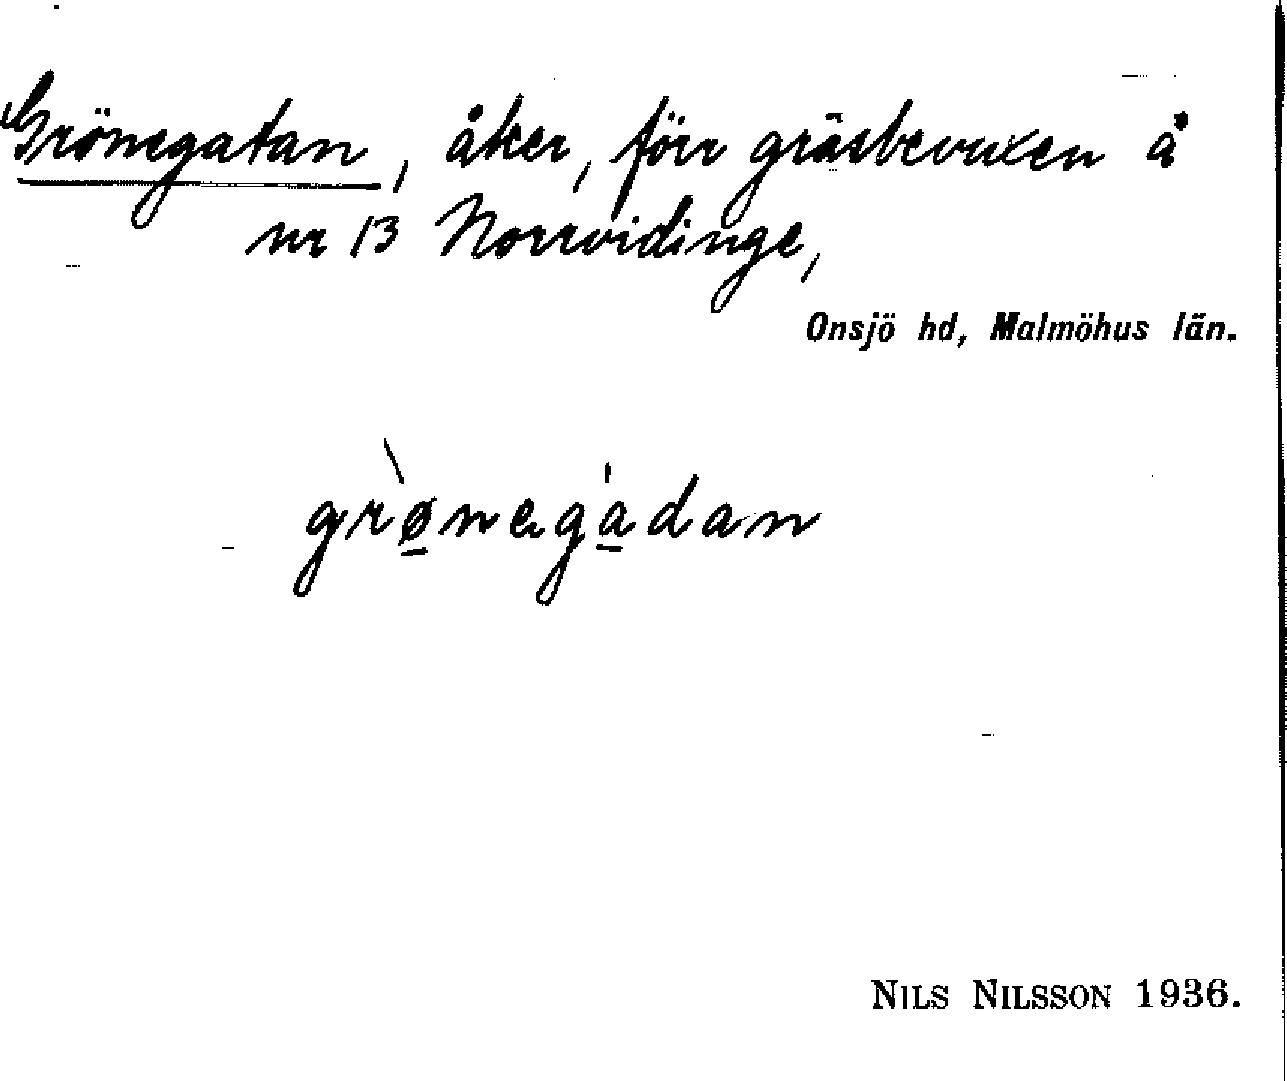 Grönegatan, åker, förr gräsbevuxen å
nr 13 Norrvidinge,
Onsjö hd, Malmöhus län.
grø̱̀nega̱̍dan
NILS NILSSON 1936.